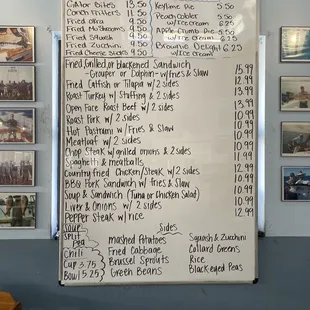 Gator Bites 13.50
Conch Fritters 11.50
Fried Okra 9.50
Fried Mushrooms 9.50
Fried Squash 9.50
Fried Zucchini 9.50
Fried Cheese Sticks 9.50
Keylime Pie 5.50
Peach Cobbler 5.50
w/Ice Cream
Apple Crumb Pie 5.50
w/Ice Cream
Brownie Delight 6.25
w/Ice Cream
Fried Grilled or Blackened Sandwich
-Grouper or Dolphin - w/fries & Slaw 15.99
Fried Catfish or Tilapia w/2 sides 12.99
Roast Turkey w/Stuffing & 2 sides 13.99
Open Face Roast Beef w/2 sides 13.99
Roast Pork w/2 sides 12.99
Hot Pastrami w/Fries & Slaw 10.99
Meatloaf w/2 sides 10.99
Chop Steak w/grilled onions & 2 sides 10.99
Spaghetti & meatballs 11.99
Country fried Chicken/Steak w/2 sides 12.99
BBQ Pork Sandwich w/fries & Slaw 10.99
Soup & Sandwich (Tuna or Chicken Salad) 10.99
Liver & Onions w/2 sides 10.99
Pepper Steak w/rice 12.99
Soup
Split Pea
Chili
Cup 3.75
Bowl 5.25
Sides
Mashed Potatoes
Fried Cabbage
Brussel Sprouts
Green Beans
Squash & Zucchini
Collard Greens
Rice
Blackeyed Peas